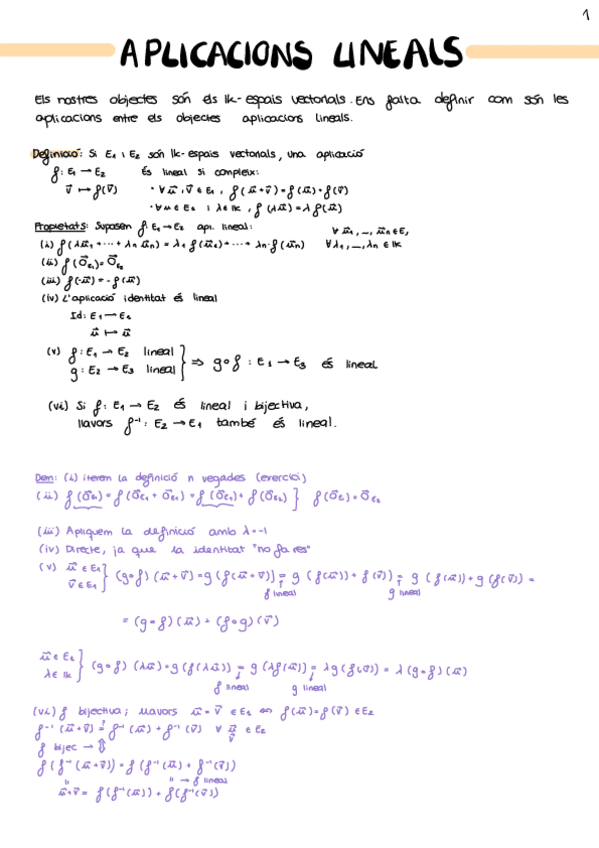 1
APLICACIONS LINEALS
Els nostres objectes són els lk-espais vectorials. Ens falta definir com són les
aplicacions entre els objectes aplicacions lineals.
Definició: Si E₁ i E₂ són lk-espais vectorials, una aplicació
f: E₁ → E₂ És lineal si compleix:
v⃗ ↦ f(v⃗) · ∀ u⃗, v⃗ ∈ E₁, f(u⃗+v⃗) = f(u⃗)+f(v⃗)
· ∀ u ∈ E₁ i λ ∈ lk, f(λu⃗) = λ f(u⃗)
Propietats: Suposem f: E₁ → E₂ apl. lineal: ∀ u⃗₁, …, u⃗n ∈ E,
(i) f(λu⃗₁ + ··· + λn u⃗n) = λ₁ f(u⃗₁) + ··· + λn · f(u⃗n) ∀ λ₁, …, λn ∈ lk
(ii) f(O⃗E₁) = O⃗E₂
(iii) f(-u⃗) = - f(u⃗)
(iv) L'aplicació identitat és lineal
Id: E₁ → E₁
u⃗ ↦ u⃗
(v) f: E₁ → E₂ lineal
g: E₂ → E₃ lineal } ⇒ g∘f : E₁ → E₃ és lineal
(vi) Si f: E₁ → E₂ és lineal i bijectiva,
llavors f⁻¹: E₂ → E₁ també és lineal.
Dem: (i) iterem la definició n vegades (exercici)
(ii) f(O⃗E₁) = f(O⃗E₁ + O⃗E₁) = f(O⃗E₁) + f(O⃗E₁) } f(O⃗E₁) = O⃗E₂
(iii) Apliquem la definició amb λ=-1
(iv) Directe, ja que la identitat "no fa res"
(v) u⃗ ∈ E₁
v⃗ ∈ E₁ } (g∘f)(u⃗+v⃗) = g(f(u⃗+v⃗)) = g(f(u⃗)+f(v⃗)) = g(f(u⃗)) + g(f(v⃗)) =
f lineal g lineal
= (g∘f)(u⃗) + (f∘g)(v⃗)
u⃗ ∈ E₁
λ ∈ lk } (g∘f)(λu⃗) = g(f(λu⃗)) = g(λf(u⃗)) = λg(f(u⃗)) = λ(g∘f)(u⃗)
f lineal g lineal
(vi) f bijectiva; llavors u⃗ = v⃗ ∈ E₁ ⇔ f(u⃗) = f(v⃗) ∈ E₂
f⁻¹(u⃗+v⃗) = f⁻¹(u⃗) + f⁻¹(v⃗) ∀ u⃗ v⃗ ∈ E₂
f bijec → ⇕
f(f⁻¹(u⃗+v⃗)) = f(f⁻¹(u⃗) + f⁻¹(v⃗))
" " → f lineal
u⃗+v⃗ = f(f⁻¹(u⃗)) + f(f⁻¹(v⃗))